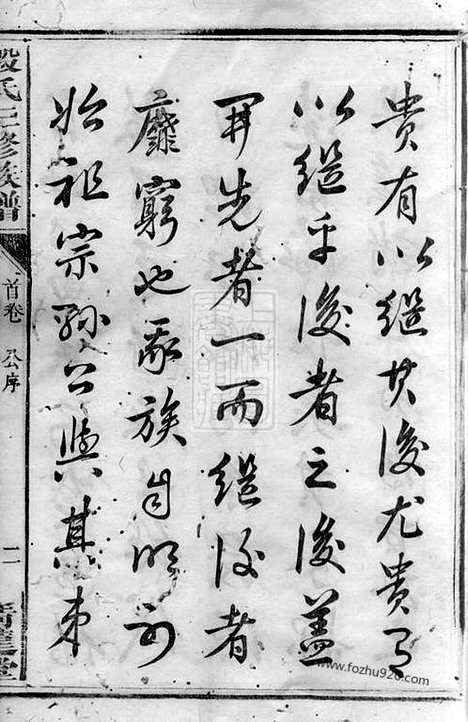 貴有以繼其後尤貴有
以繼乎後者之後蓋
開先者一而繼後者
靡窮也我族自明初
始祖宗孫公與其弟
殷氏三修族譜
首卷 公序
二
www.fozhu920.com